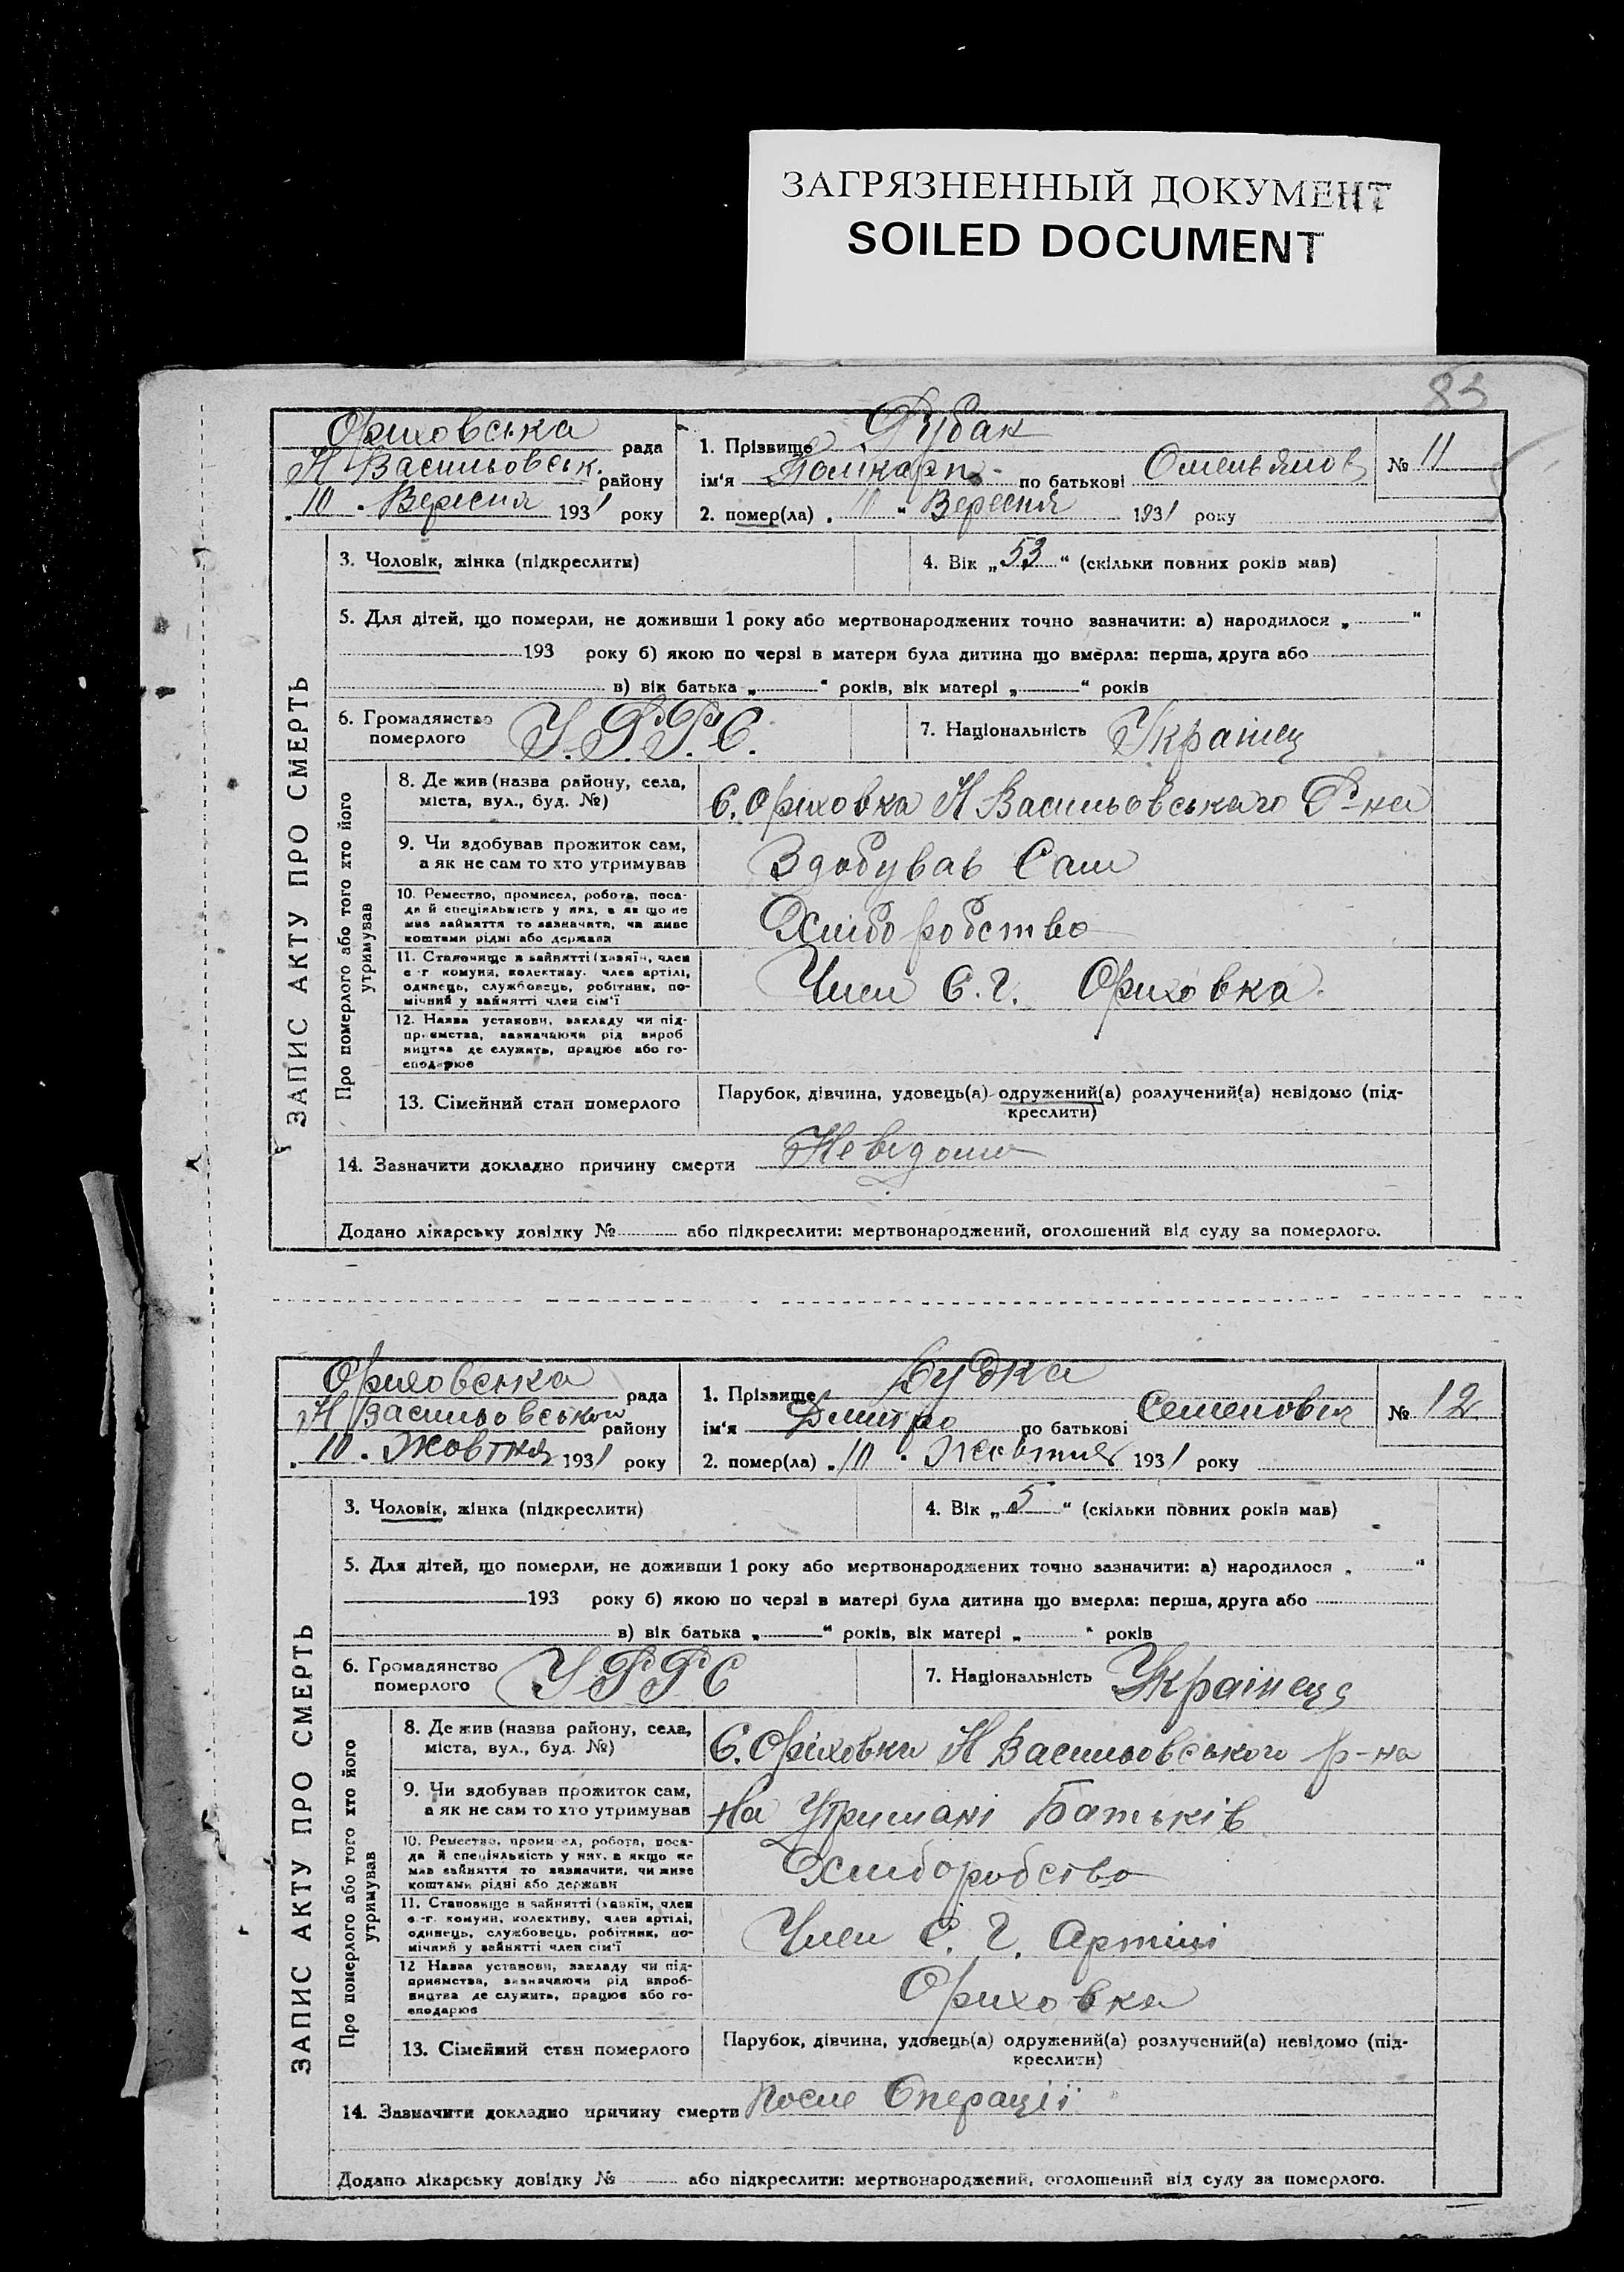 ЗАГРЯЗНЕННЫЙ ДОКУМЕНТ
SOILED DOCUMENT
83
Ориховська рада
Н Васильовськ. району
„10 . Вересня 1931 року
1. Прізвище Дубак
ім'я Поликарп по батькові Омельянов
№ 11
2. помер(ла) „ 10 " Вересня 1931 року
ЗАПИС АКТУ ПРО СМЕРТЬ
3. Чоловік, жінка (підкреслити)
4. Вік „53" (скільки повних років мав)
5. Для дітей, що померли, не доживши 1 року або мертвонароджених точно зазначити: а) народилося „ "
193 року б) якою по черзі в матери була дитина що вмерла: перша, друга або
в) вік батька „ " років, вік матері „ " років
6. Громадянство
померлого У.Р.Р.С.
7. Національність Украінец
Про померлого або того хто його
утримував
8. Де жив (назва району, села,
міста, вул., буд. №)
С. Ориховка Н Васильовського Р-на
9. Чи здобував прожиток сам,
а як не сам то хто утримував
Здобував Сам
10. Ремество, промисел, робота, поса-
да й спеціяльність у них, а як що не
мав зайняття то зазначити, чи живе
коштами рідні або держави
Хліборобство
11. Становище в зайнятті (хазяїн, член
с.-г. комуни, колективу, член артілі,
одинець, службовець, робітник, по-
мічний у зайнятті член сім'ї
Член С. Г. Ориховка
12. Назва установи, закладу чи під-
приємства, зазначаючи рід вироб
ництва де служить, працює або го-
сподарює
13. Сімейний стан померлого
Парубок, дівчина, удовець(а) одружений(а) розлучений(а) невідомо (під-
креслити)
14. Зазначити докладно причину смерти Невідомо
Додано лікарську довідку № або підкреслити: мертвонароджений, оголошений від суду за померлого.
Ориховська рада
Н Васильовського району
„10 . Жовтня 1931 року
1. Прізвище Будка
ім'я Дмитро по батькові Семенович
№ 12
2. помер(ла) „10 . Жовтня 1931 року
ЗАПИС АКТУ ПРО СМЕРТЬ
3. Чоловік, жінка (підкреслити)
4. Вік „5" (скільки повних років мав)
5. Для дітей, що померли, не доживши 1 року або мертвонароджених точно зазначити: а) народилося „ "
193 року б) якою по черзі в матері була дитина що вмерла: перша, друга або
в) вік батька „ " років, вік матері „ " років
6. Громадянство
померлого У Р Р С
7. Національність Украінець
Про померлого або того хто його
утримував
8. Де жив (назва району, села,
міста, вул., буд. №)
С. Оріховки Н Васильовського р-на
9. Чи здобував прожиток сам,
а як не сам то хто утримував
На Утримані Батьків
10. Ремество, промисел, робота, поса-
да й спеціяльність у них, а якщо не
мав зайняття то зазначити, чи живе
коштами рідні або держави
Хліборобство
11. Становище в зайнятті (хазяїн, член
с.-г. комуни, колективу, член артілі,
одинець, службовець, робітник, по-
мічний у зайнятті член сім'ї
Член С. Г. Артілі
12 Назва установи, закладу чи під-
приємства, зазначаючи рід вироб-
ництва де служить, працює або го-
сподарює
Ориховка
13. Сімейний стан померлого
Парубок, дівчина, удовець(а) одружений(а) розлучений(а) невідомо (під-
креслити)
14. Зазначити докладно причину смерти После Операціі
Додано лікарську довідку № або підкреслити: мертвонароджений, оголошений від суду за померлого.